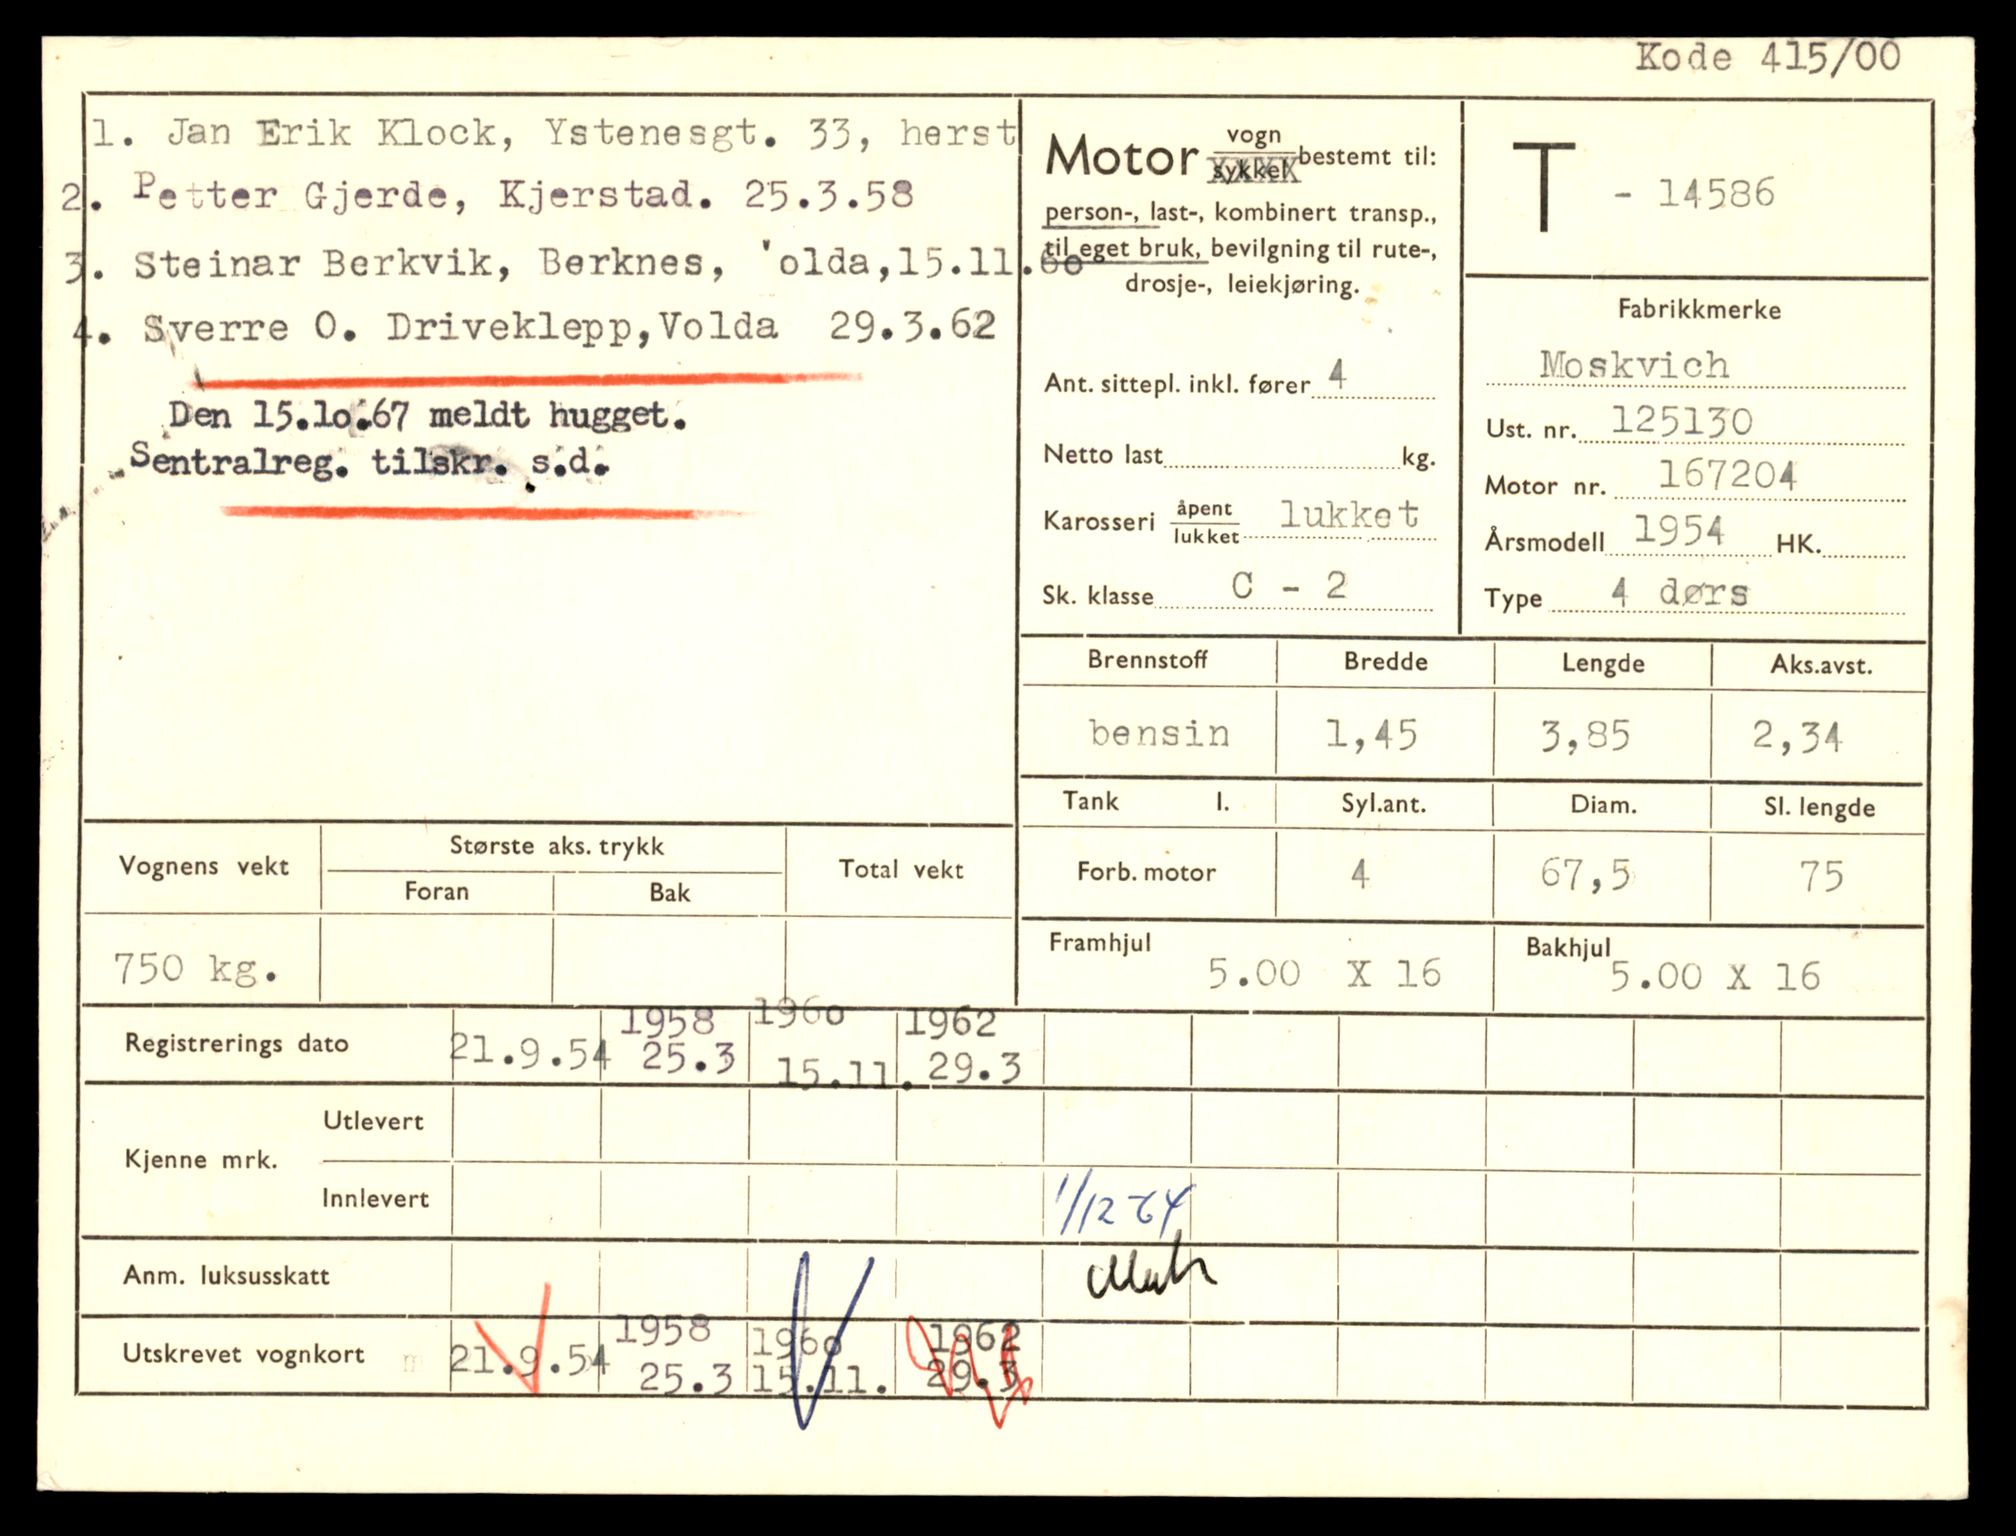 Kode 415/00
1. Jan Erik Klock, Ystenesgt. 33, herst
2. Petter Gjerde, Kjerstad. 25.3.58
3. Steinar Berkvik, Berknes, 'olda,15.11.60
4. Sverre O. Driveklepp,Volda 29.3.62
Den 15.lo.67 meldt hugget.
Sentralreg. tilskr. s.d.
Motor vogn
sykkel bestemt til:
person-, last-, kombinert transp.,
til eget bruk, bevilgning til rute-,
drosje-, leiekjøring.
Ant. sittepl. inkl. fører 4
Netto last kg.
Karosseri åpent
lukket lukket
Sk. klasse C - 2
T - 14586
Fabrikkmerke
Moskvich
Ust. nr. 125130
Motor nr. 167204
Årsmodell 1954 HK.
Type 4 dørs
Brennstoff Bredde Lengde Aks.avst.
bensin 1,45 3,85 2,34
Tank l. Syl.ant. Diam. Sl. lengde
Forb. motor 4 67,5 75
Framhjul 5.00 X 16 Bakhjul 5.00 X 16
Vognens vekt Største aks. trykk Total vekt
Foran Bak
750 kg.
1958 196o 1962
Registrerings dato 21.9.54 25.3 15.11. 29.3
Kjenne mrk. Utlevert
Innlevert 1/12 64
Anm. luksusskatt
1958 196o 1962
Utskrevet vognkort m 21.9.54 25.3 15.11. 29.3